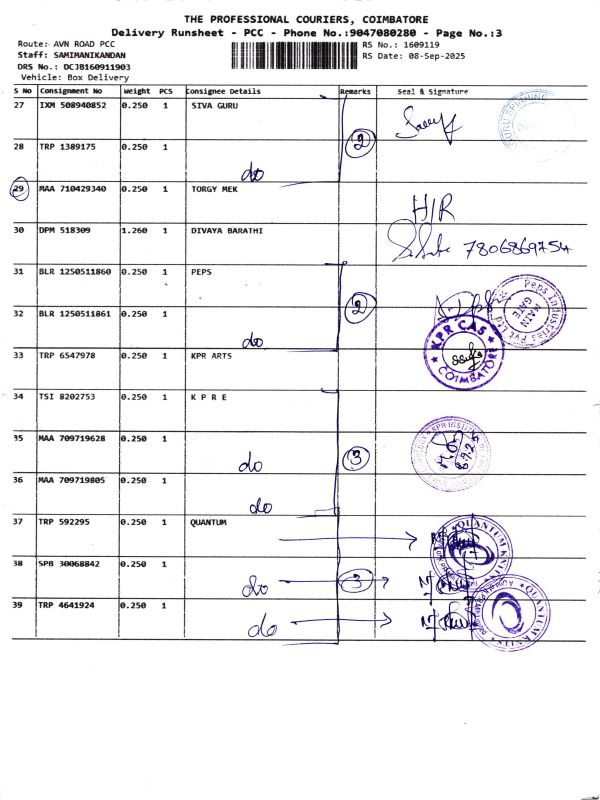 THE PROFESSIONAL COURIERS, COIMBATORE
Delivery Runsheet - PCC - Phone No.:9047080280 - Page No.:3
Route: AVN ROAD PCC RS No.: 1609119
Staff: SAMIMANIKANDAN RS Date: 08-Sep-2025
DRS No.: DCJB160911903
Vehicle: Box Delivery
S No Consignment No Weight PCS Consignee Details Remarks Seal & Signature
27 IXM 508940852 0.250 1 SIVA GURU
28 TRP 1389175 0.250 1 do 2
29 MAA 710429340 0.250 1 TORGY MEK H/R
30 DPM 518309 1.260 1 DIVAYA BARATHI 7806869754
31 BLR 1250511860 0.250 1 PEPS
Peps Industries Pvt Ltd
MAIN GATE
32 BLR 1250511861 0.250 1 do 2
33 TRP 6547978 0.250 1 KPR ARTS
KPR CAS
COIMBATORE
34 TSI 8202753 0.250 1 K P R E
35 MAA 709719628 0.250 1 do 3
36 MAA 709719805 0.250 1 do
37 TRP 592295 0.250 1 QUANTUM
QUANTUM KNITS
38 SPB 30068842 0.250 1 do 3
39 TRP 4641924 0.250 1 do
QUANTUM KNITS